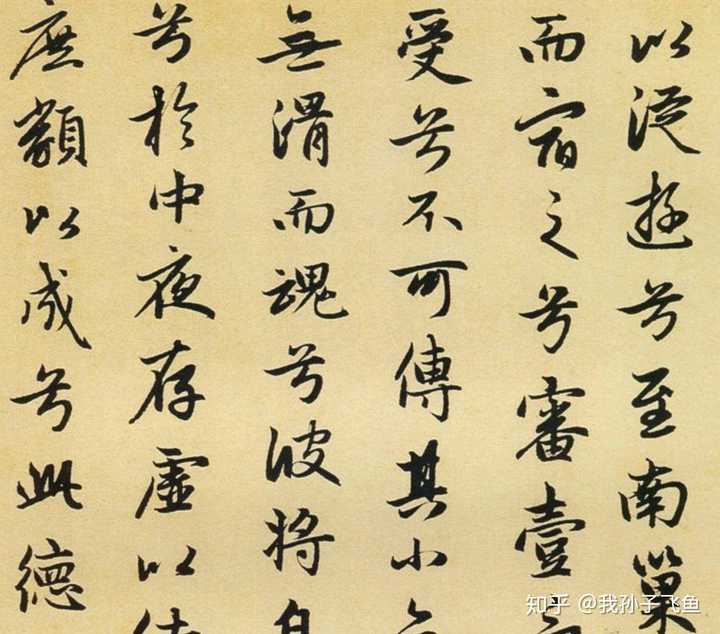 以從遊兮至南巢
而宿之兮審壹
受兮不可傳其小
無滑而魂兮彼將自
兮於中夜存虛以
庶類以成兮此德
知乎 @我孙子飞鱼